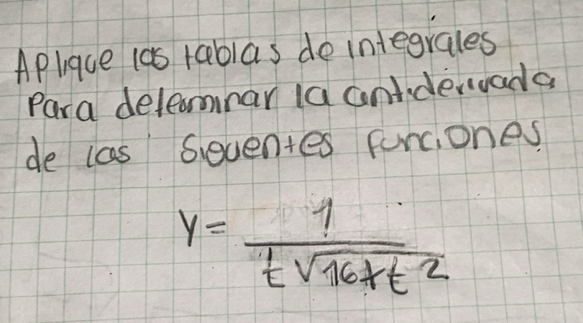 Aplique las tablas de integrales
Para determinar la antiderivada
de las siguentes funciones
y = 1 / t√16+t²